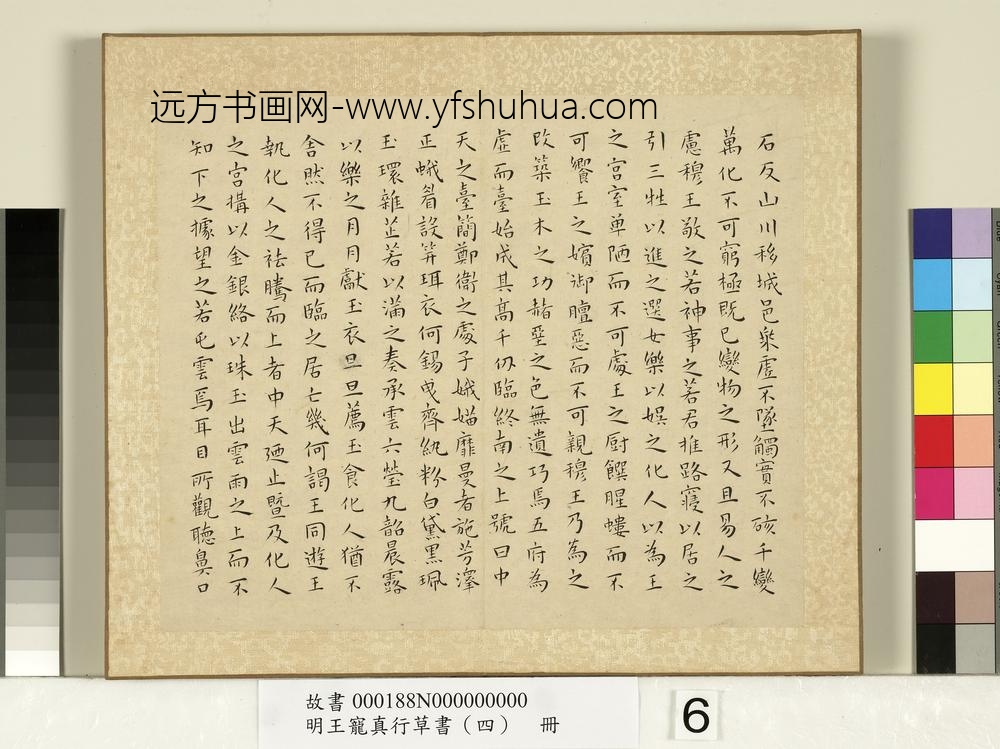 远方书画网-www.yfshuhua.com
石反山川移城邑乗虛不墜觸實不硋千變
萬化不可窮極既已變物之形又且易人之
慮穆王敬之若神事之若君推路寢以居之
引三牲以進之選女樂以娯之化人以為王
之宮室卑陋而不可處王之廚饌腥螻而不
可饗王之嬪御膻惡而不可親穆王乃為之
改築土木之功赭堊之色無遺巧焉五府為
虛而臺始成其高千仭臨終南之上號曰中
天之臺簡鄭衛之處子娥媌靡曼者施芳澤
正蛾眉設笄珥衣阿錫曳齊紈粉白黛黑珮
玉環雜芷若以滿之奏承雲六瑩九韶晨露
以樂之月月獻玉衣旦旦薦玉食化人猶不
舍然不得已而臨之居亡幾何謁王同遊王
執化人之袪騰而上者中天廼止曁及化人
之宮構以金銀絡以珠玉出雲雨之上而不
知下之據望之若屯雲焉耳目所觀聽鼻口
故書 000188N000000000
明王寵真行草書（四） 冊
6